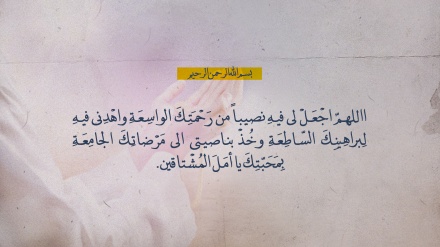 بسم الله الرحمن الرحيم
االلهمّ اجْعَلْ لى فيهِ نصيباً من رَحْمَتِكَ الواسِعَةِ واهْدِنى فيهِ
لِبراهينِكَ السّاطِعَةِ وخُذْ بناصيتى الى مَرْضاتِكَ الجامِعَةِ
بِمَحَبّتِكَ يا أمَلَ المُشْتاقين.